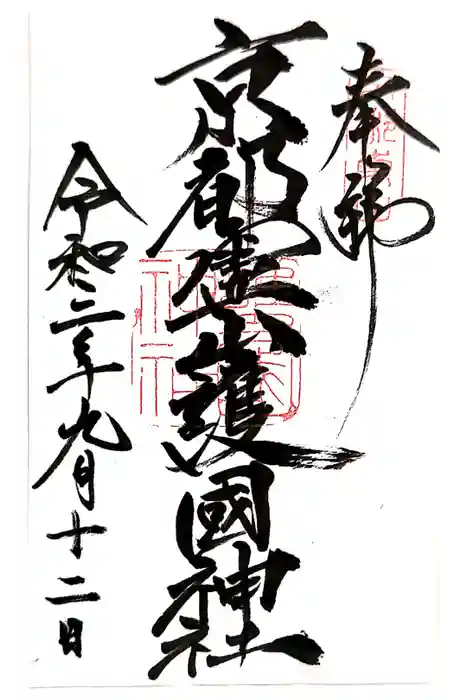 奉拝
京都靈山護國神社
令和二年九月十二日